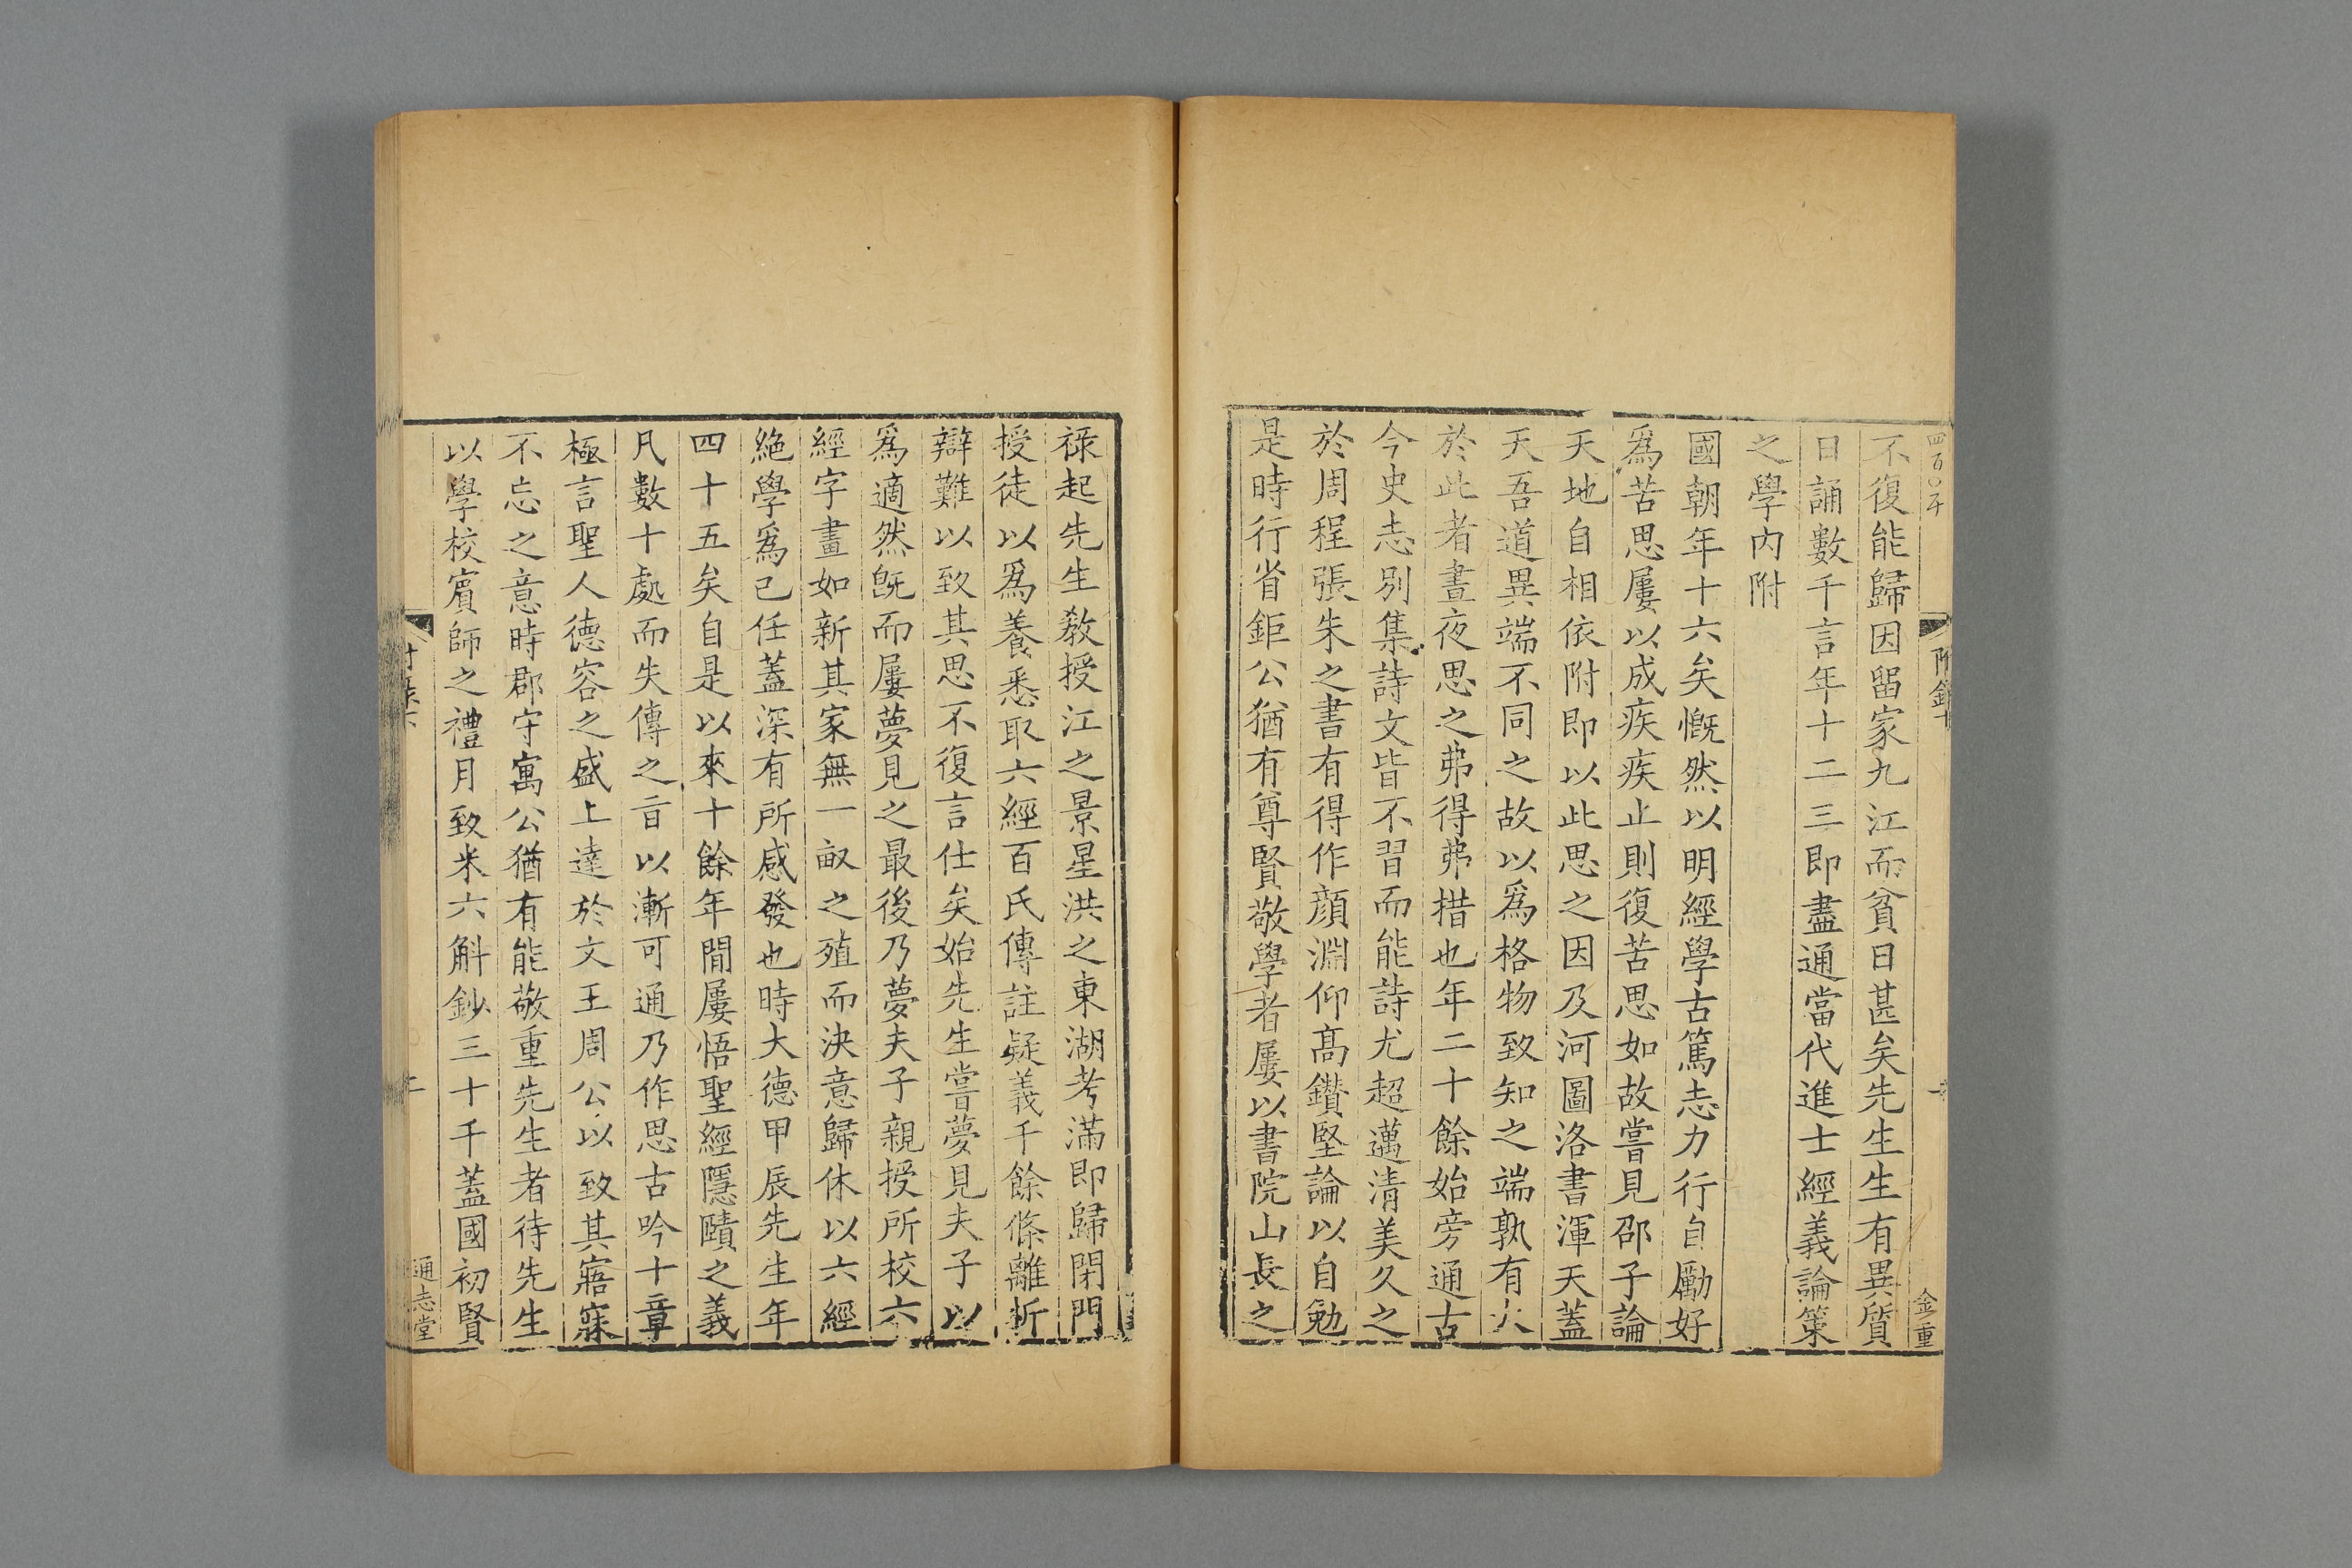 不復能歸因留家九江而貧日甚矣先生生有異質
日誦數千言年十二三即盡通當代進士經義論策
之學内附
國朝年十六矣慨然以明經學古篤志力行自勵好
爲苦思屢以成疾疾止則復苦思如故嘗見邵子論
天地自相依附即以此思之因及河圖洛書渾天蓋
天吾道異端不同之故以爲格物致知之端孰有大
於此者晝夜思之弗得弗措也年二十餘始旁通古
今史志別集詩文皆不習而能詩尤超邁清美久之
於周程張朱之書有得作顏淵仰高鑽堅論以自勉
是時行省鉅公猶有尊賢敬學者屢以書院山長之
附錄
金重
祿起先生敎授江之景星洪之東湖考滿即歸閉門
授徒以爲養悉取六經百氏傳註疑義千餘條離析
辯難以致其思不復言仕矣始先生嘗夢見夫子以
爲適然旣而屢夢見之最後乃夢夫子親授所校六
經字畫如新其家無一畝之殖而決意歸休以六經
絶學爲己任蓋深有所感發也時大德甲辰先生年
四十五矣自是以來十餘年間屢悟聖經隱賾之義
凡數十處而失傳之旨以漸可通乃作思古吟十章
極言聖人德容之盛上達於文王周公以致其寤寐
不忘之意時郡守寓公猶有能敬重先生者待先生
以學校賓師之禮月致米六斛鈔三十千蓋國初賢
通志堂